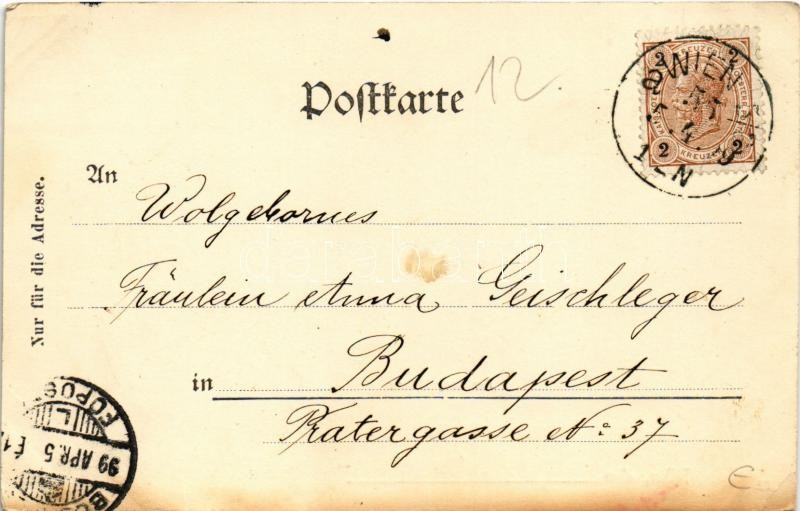 Postkarte
12
An
Wolgebornes
Fräulein Anna Geischleger
in Budapest
Pratergasse No: 37
Nur für die Adresse.
WIEN
2 KREUZER 2
99 APR. 5
FŐPOS
darabanth